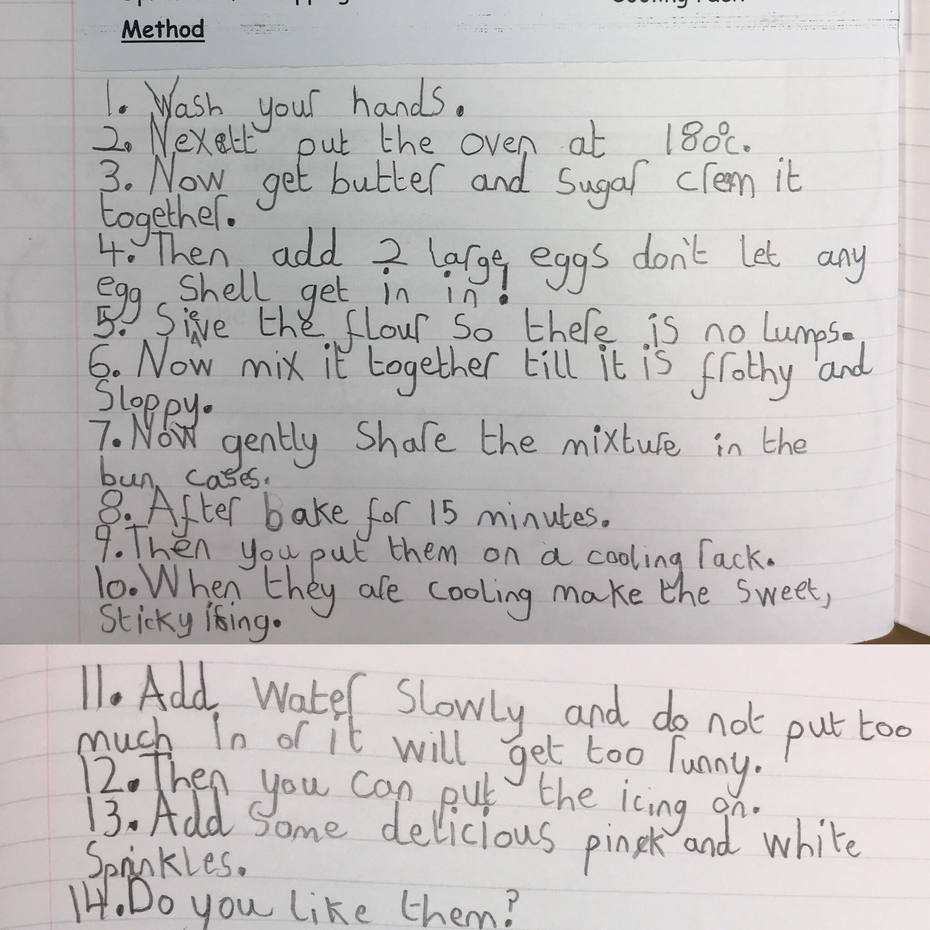 Method
1. Wash your hands.
2. Nexett put the oven at 180°c.
3. Now get butter and sugar crem it
together.
4. Then add 2 large eggs don't let any
egg shell get in in!
5. Sieve the flour so there is no lumps.
6. Now mix it together till it is frothy and
sloppy.
7. Now gently share the mixture in the
bun cases.
8. After bake for 15 minutes.
9. Then you put them on a cooling rack.
10. When they are cooling make the sweet,
sticky ising.
11. Add water slowly and do not put too
much in or it will get too runny.
12. Then you can put the icing on.
13. Add some delicious pink and white
sprinkles.
14. Do you like them?